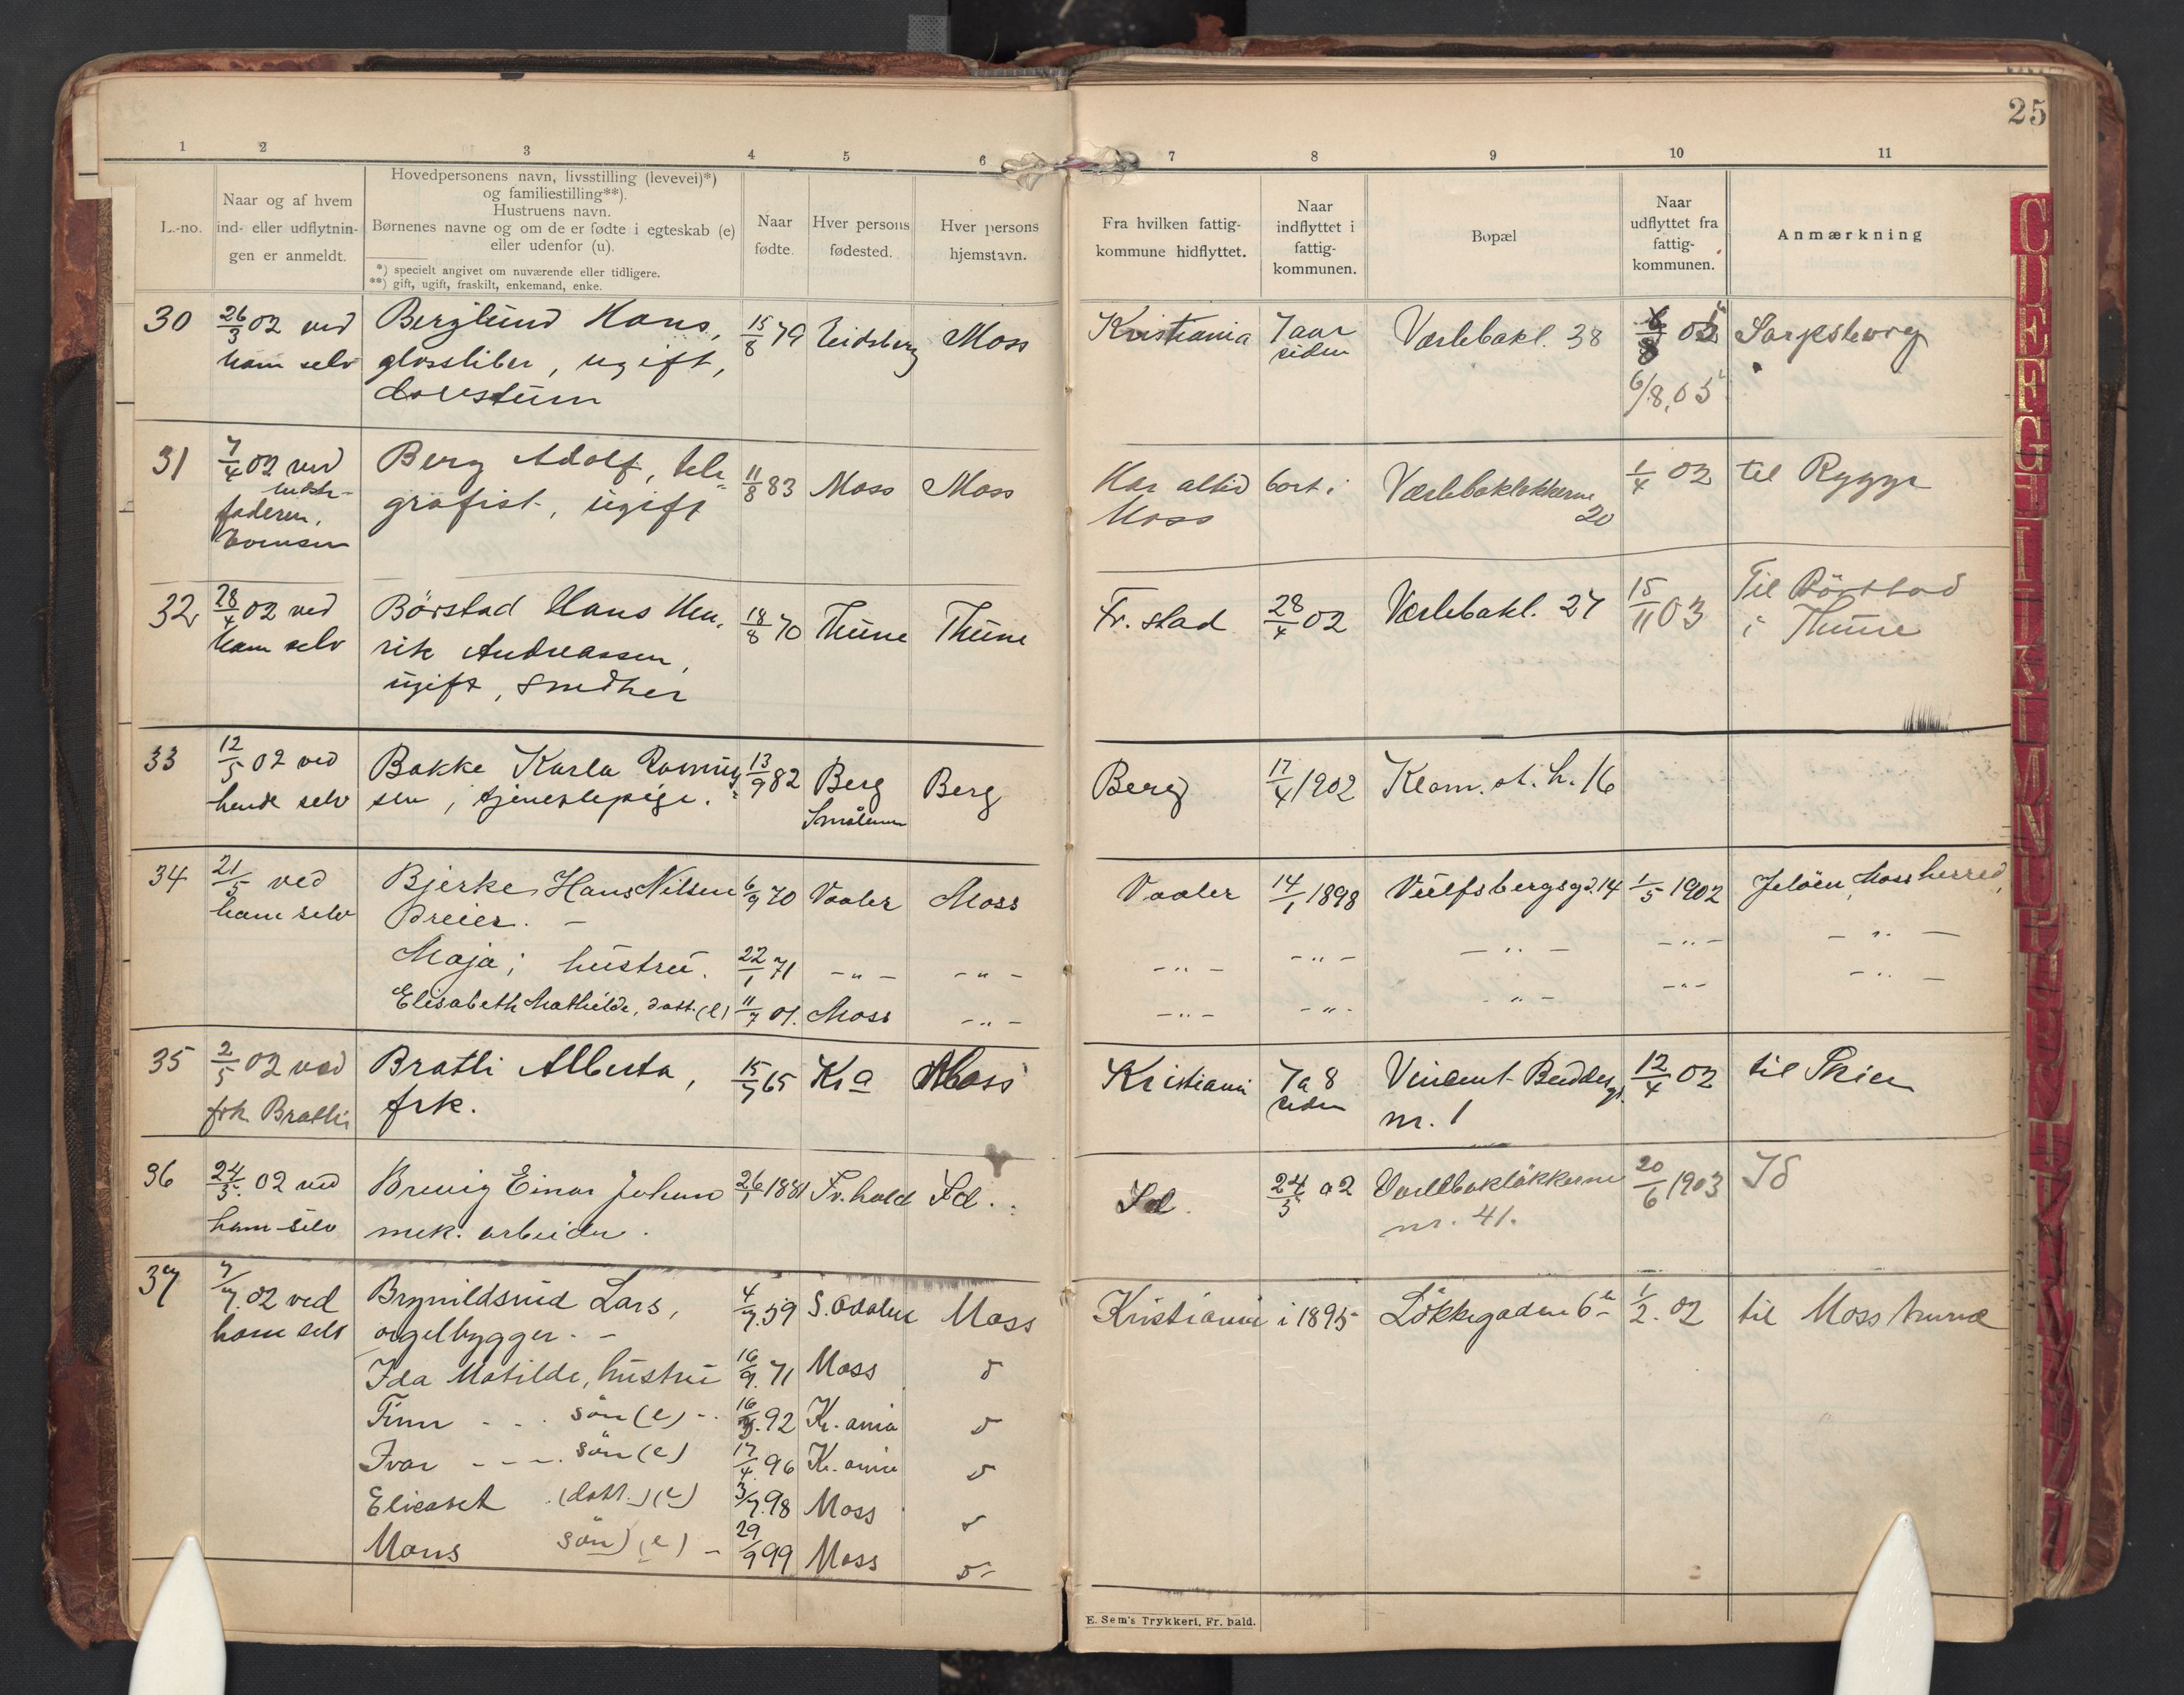 25
1 2 3 4 5 6 7 8 9 10 11
L.-no.
Naar og af hvem
ind- eller udflytnin-
gen er anmeldt.
Hovedpersonens navn, livsstilling (levevei)*)
og familiestilling**).
Hustruens navn.
Børnenes navne og om de er fødte i egteskab (e)
eller udenfor (u).
*) specielt angivet om nuværende eller tidligere.
**) gift, ugift, fraskilt, enkemand, enke.
Naar
fødte.
Hver persons
fødested.
Hver persons
hjemstavn.
Fra hvilken fattig-
kommune hidflyttet.
Naar
indflyttet i
fattig-
kommunen.
Bopæl
Naar
udflyttet fra
fattig-
kommunen.
Anmærkning
30 26/3 02 ved Berglund Hans, 15/8 79 Eidsberg Moss Kristiania 7 aar Værlebakl. 38 6/8 05 Sarpsborg
ham selv glassliber, ugift, siden
døvstum 6/8.05
31 7/4 02 ved Berg Adolf, tele= 11/8 83 Moss Moss Har altid bott i Værlebakløkkerne 1/4 02 til Rygge
faderen, grafist, ugift Moss 20
Evensen
32 28/4 02 ved Börstad Hans Hen- 18/8 70 Thune Thune Fr. stad 28/4 02 Værlebakl. 27 15/11 03 Til Börstad
ham selv rik Andreassen, i Thune
ugift, smed her
33 12/5 02 ved Bakke Karla Rasmus= 13/9 82 Berg Berg Berg 17/4 1902 Kom. st. h. 16
hende selv sen, tjenestepige. Smålenene
34 21/5 ved Bjerke, Hans Nilsen 6/9 70 Vaaler Moss Vaaler 14/1 1898 Vulfsbergsgd. 14 1/5 1902 Jeløen, Moss herred,
ham selv Dreier. -
Maja; hustru. 22/1 71 - " - - " - - " - - " - - " - - " - - " -
Elisabeth Mathilde, datt. (e) 11/7 01. Moss - " - - " - - " - " - - " - - " -
35 2/5 02 ved Bratli Alberta, 15/7 65 Kra Moss Kristiania 7 a 8 Vincent Buddesgt. 12/4 02 til Skien
frk. Bratli frk. siden nr. 1
36 24/5. 02 ved Brevig Einar Johan 26/1 1881 Fr.hald Id. Id. 24/5 02 Værlebakløkkerne 20/6 1903 Id
ham selv mek. arbeider. nr. 41.
37 7/7. 02 ved Brynildsrud Lars, 4/7. 59 S. Odalen Moss Kristiania i 1895 Løkkegaden 6 1/2. 02 til Moss
ham selv orgelbygger. -
Ida Matilde, hustru 16/9. 71 Moss d
Finn - - . søn (e) - . 16/3. 92 Kr.ania d
Ivar - - - . søn (e) 17/4. 96 Kr.ania d
Elisabet (datt.) (e) 3/7. 98 Moss d
Mons søn) (e) - 29/9 99 Moss d
E. Sem's Trykkeri, Fr. hald.
C D E F G H I J K L M N